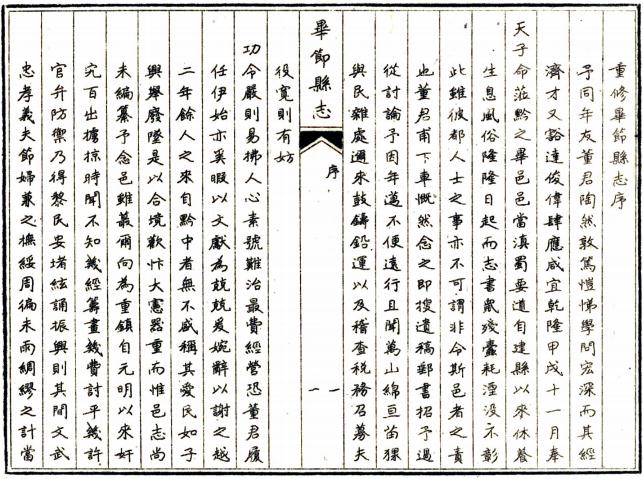 重修畢節縣志序
予同年友董君陶然敦篤愷悌學問宏深而其經
濟才又豁達俊偉肆應咸宜乾隆甲戌十一月奉
天子命蒞黔之畢邑邑當滇蜀要道自建縣以來休養
生息風俗隆隆日起而志書鼠殘蠹耗湮沒不彰
此雖彼都人士之事亦不可謂非令斯邑者之責
也董君甫下車慨然念之即搜遺稿郵書招予過
從討論予因年邁不便遠行且聞萬山綿亘苗猓
與民雜處邇來鼓鑄鉛運以及稽查税務召募夫
役寬則有妨
畢節縣志
序
一
一
功令嚴則易拂人心素號難治最費經營恐董君履
任伊始亦奚暇以文獻為兢兢爰婉辭以謝之越
二年餘人之來自黔中者無不盛稱其愛民如子
興舉廢墜是以合境歡忭大憲器重而惟邑志尚
未編纂予念邑雖蕞爾向為重鎮自元明以來奸
宄百出擄掠時聞不知幾經籌畫幾費討平幾許
官弁防禦乃得黎民安堵絃誦振興則其間文武
忠孝義夫節婦兼之撫綏周徧未雨綢繆之計當